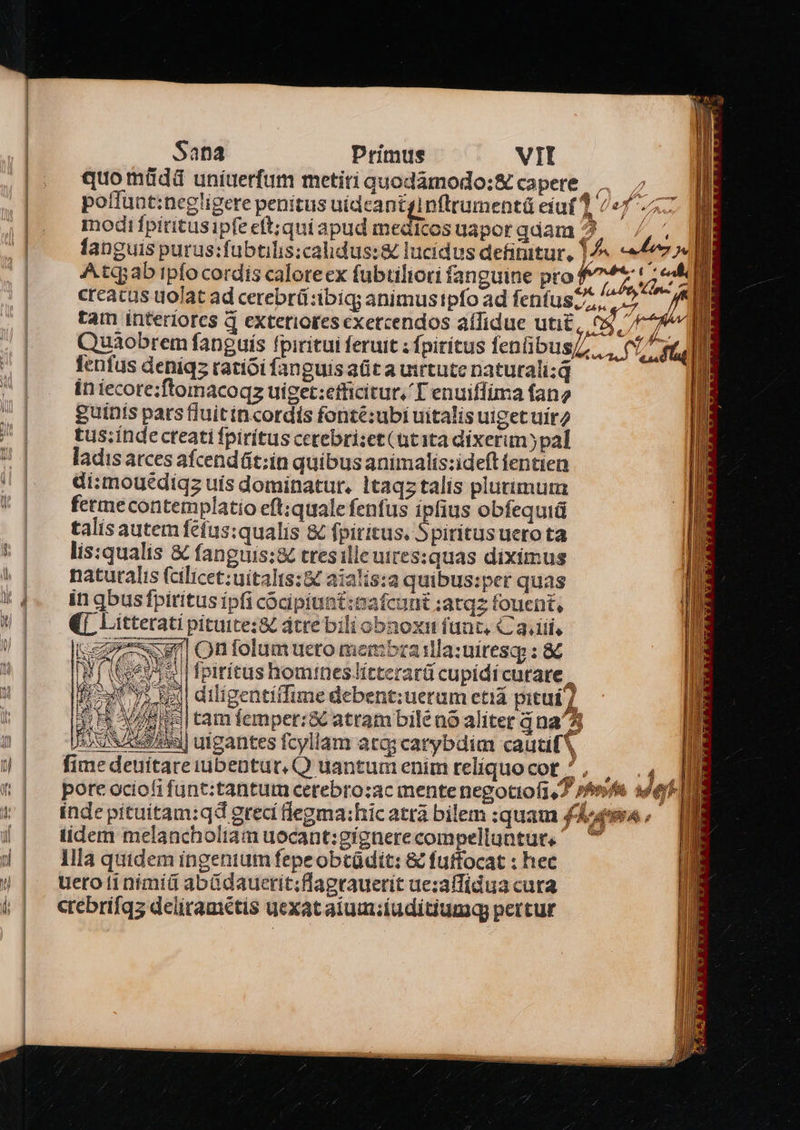 Sana Primus VII
quo mūdū uniuerſum metiri quodāmodo:& capere
poſſunt:negligere penitus uideantᵉinſtrumentū eiuſ
modi ſpiritus ipſe eſt;qui apud medicos uapor qdam
ſanguis purus:ſubtilis:calidus:& lucidus definitur.
Atq;ab ipſo cordis calore ex ſubtiliori ſanguine pro
creatus uolat ad cerebrū:ibiq; animus ipſo ad ſenſus
tam interiores q̄ exteriores exercendos aſſidue utit̄.
Quāobrem ſanguis ſpiritui ſeruit : ſpiritus ſenſibus
ſenſus deniqz ratiōi ſanguis aūt a uirtute naturali:q̄
in iecore:ſtomacoqz uiget:efficitur. Tenuiſſima ſanꝫ
guinis pars fluit in cordis fonté:ubi uitalis uiget uirꝫ
tus:inde creati ſpiritus cerebri:et(ut ita dixerim)pal
ladis arces aſcendūt:in quibus animalis:ideſt ſentien
di:mouēdiqz uis dominatur. Itaqz talis plurimum
ferme contemplatio eſt:quale ſenſus ipſius obſequiū
talis autem ſēſus:qualis & ſpiritus. Spiritus uero ta
lis:qualis & ſanguis:& tres ille uires:quas diximus
naturalis ſcilicet:uitalis:& aīalis:a quibus:per quas
in qbus ſpiritus ipſi cōcipiunt:naſcunt :atqz fouent.
¶ Litterati pituite:& atre bili obnoxii ſunt. Ca.iii.
On ſolum uero membra illa:uiresq; : &
ſpiritus homines litterarū cupidi curare
diligentiſſime debent:uerum etiā pitui
tam ſemper:& atram bilē nō aliter q̄ na
uigantes ſcyllam atq; carybdim cautiſ
ſime deuitare iubentur. Quantum enim reliquo cor
pore ocioſi ſunt:tantum cerebro:ac mente negotioſi.
inde pituitam:qd greci flegma:hic atrā bilem :quam flegma
iidem melancholiam uocant:gignere compelluntur.
Illa quidem ingenium ſepe obtūdit: & ſuffocat : hec
uero ſi nimiū abūdauerit;flagrauerit ue:aſſidua cura
crebriſqz deliramētis uexat aīum:iuditiumq; pertur